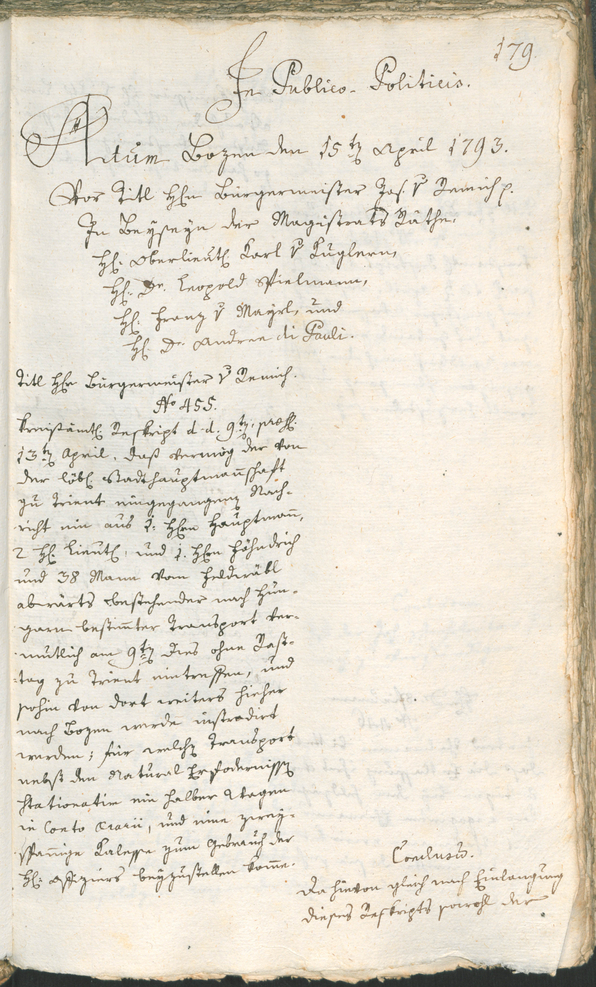 179.
In Publico-Politicis.
Actum Bozen den 15ten April 1793.
Vor Titl Hhn Bürgermeister Jos. v Remich p.
In Beyseyn der Magistrats Räthe,
Hh. Oberlieut. Karl v Kuglern,
Hh. Dr. Leopold Spielmann,
Hh. Franz v Mayrl, und
Hh. Dr. Andree di Pauli.
Titl Hhr Bürgermeister v Remich.
No 455.
Kreisämtl. Reskript d. d. 9ten, praess.
13ten April, daß vermög der von
der löbl. Stadthauptmannschaft
zu Trient eingegangenen Nach-
richt ein aus 1. Hhn Hauptmann,
2 Hh. Lieut., und 1. Hhn Fähndrich
und 38 Mann vom Feldwäbl
abwärts bestehender nach Hun-
garn bestimmter Transport ver-
mutlich am 9ten dies ohne Rast-
tag zu Trient eintreffen, und
sohin von dort weiters hieher
nach Bozen werde instradirt
werden; für welchen Transport
nebst den Natural Erfordernissen
stationatim ein halber Wagen
in Conto Aerarii, und eine zwey-
spännige Kalesse zum Gebrauch der
Hh. Offiziers beyzustellen komme.
Conclusum.
Da hievon gleich nach Einlangung
dieses Reskripts sowohl der